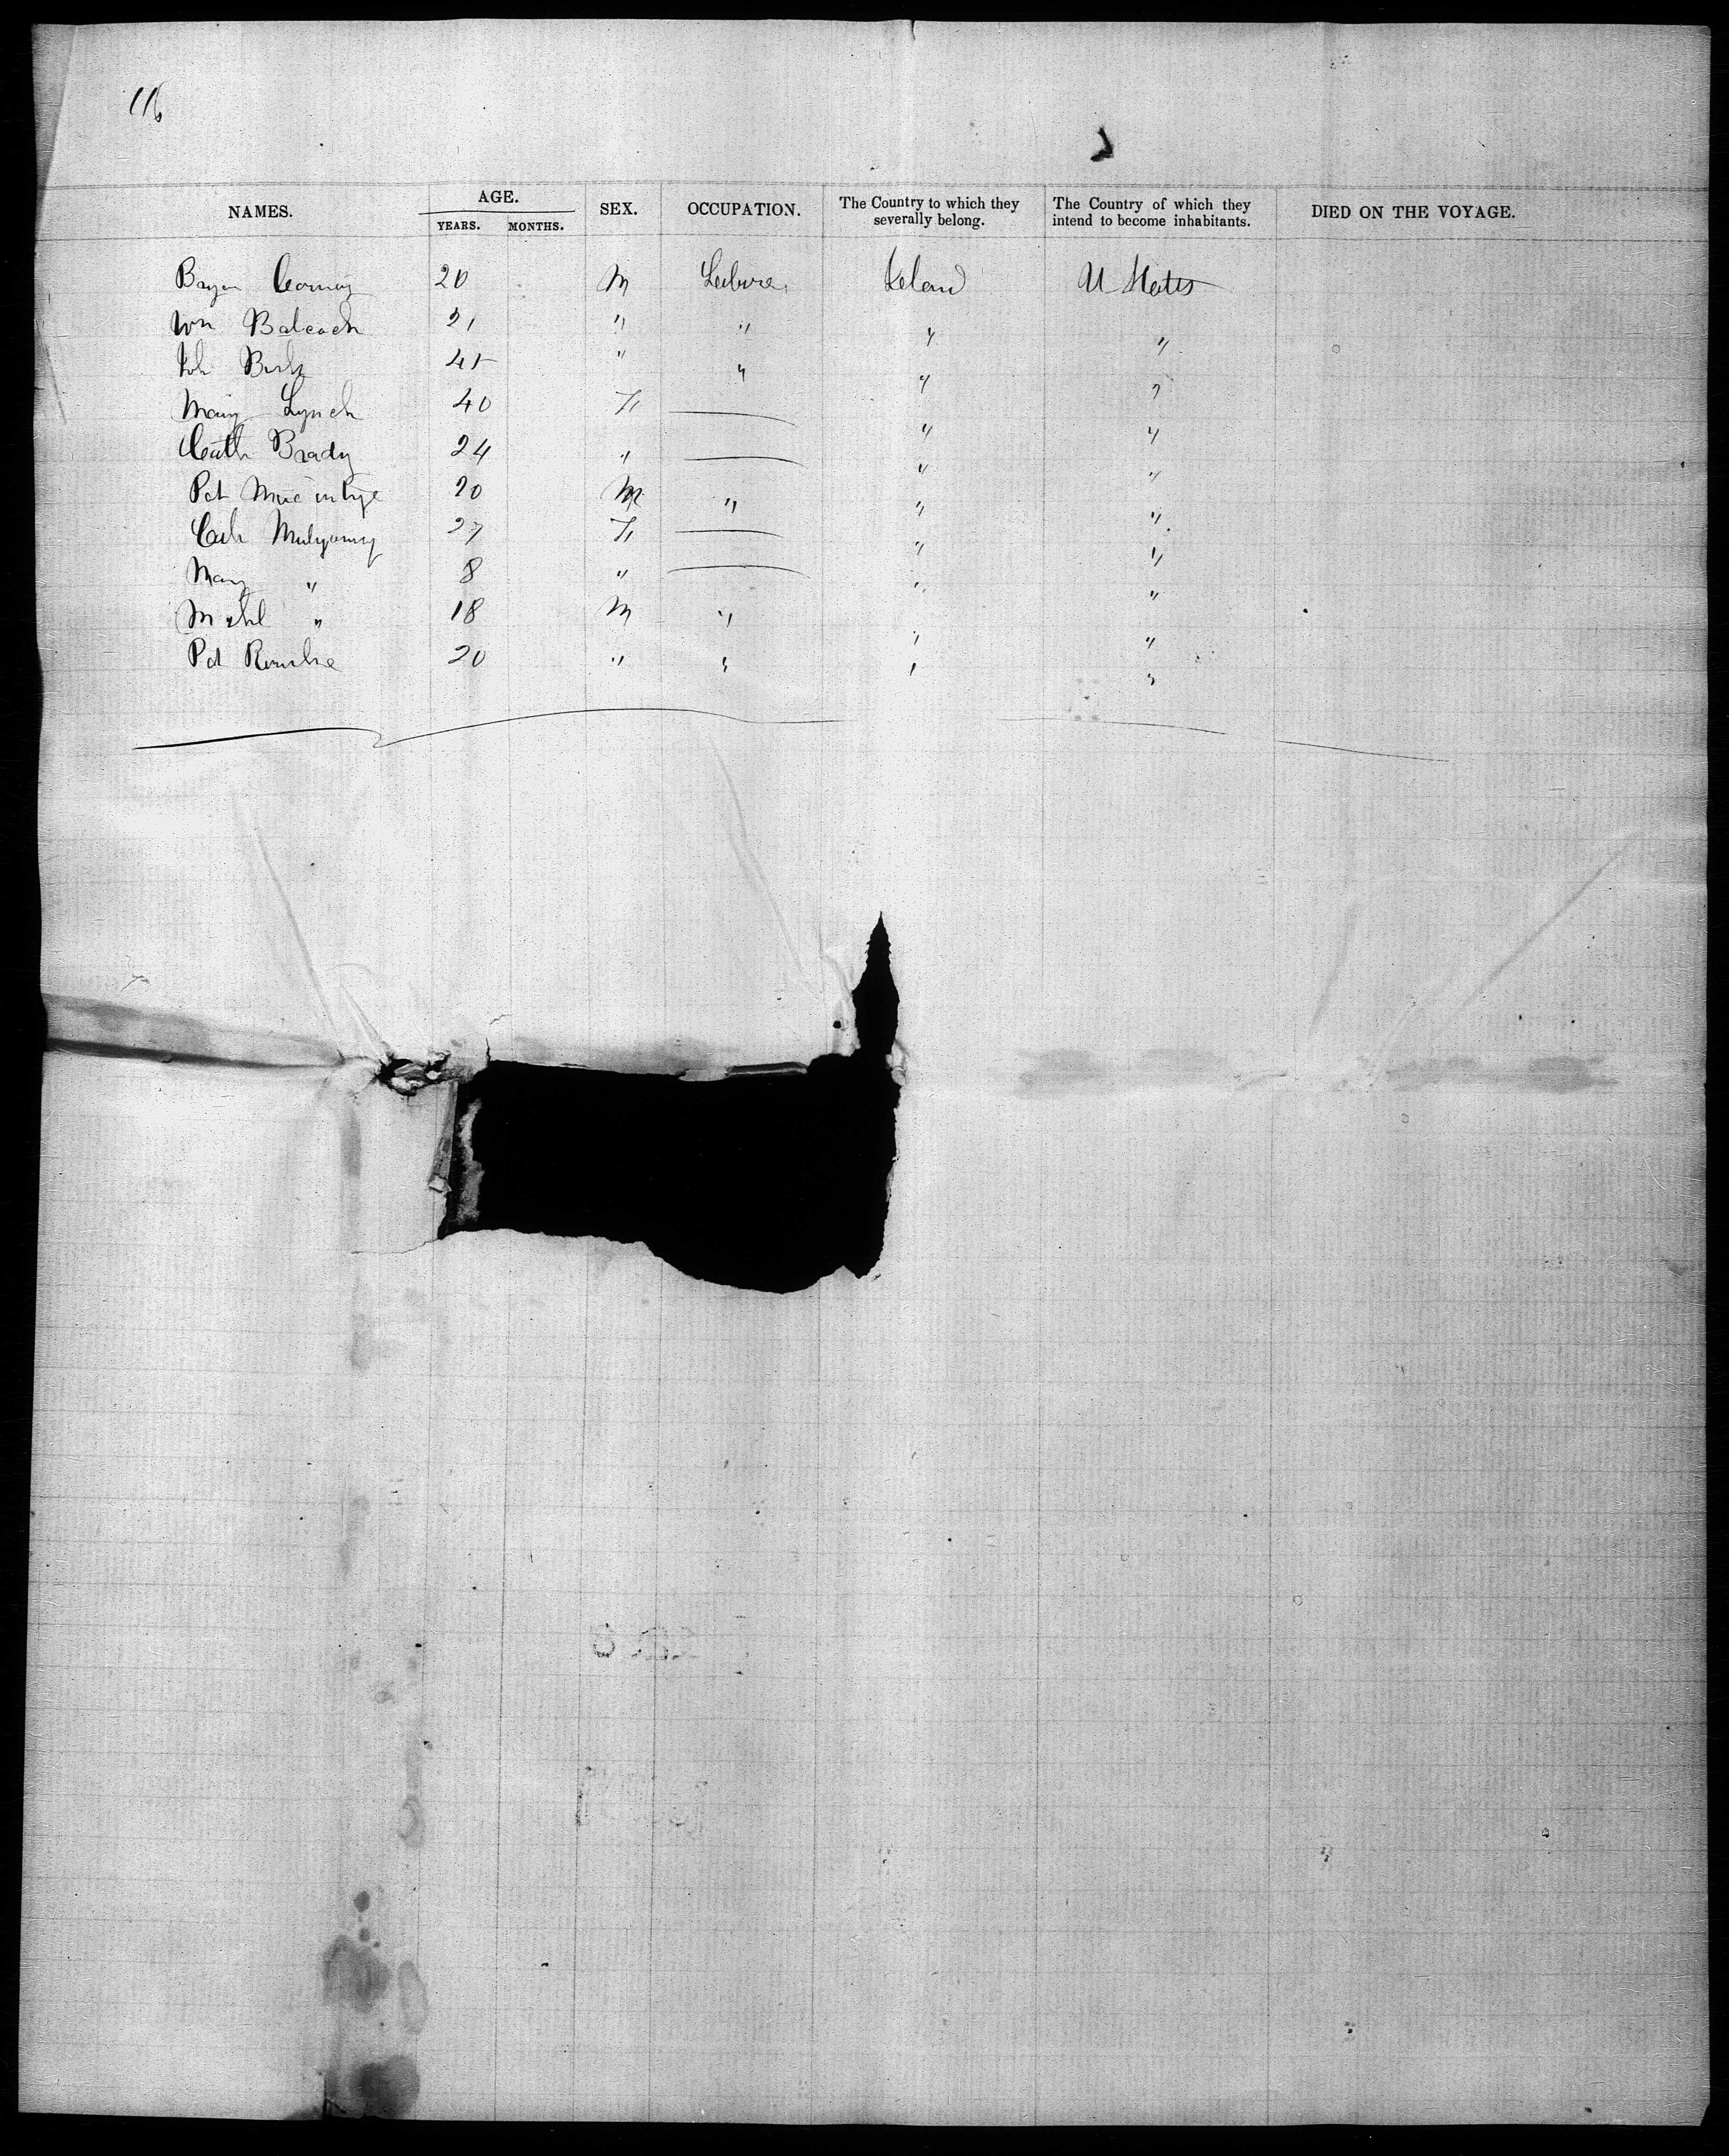 116
NAMES. AGE. SEX. OCCUPATION. The Country to which they severally belong. The Country of which they intend to become inhabitants. DIED ON THE VOYAGE.
YEARS. MONTHS.
Bryan 20 M Ireland U States
Wm Babcock 21 " " " "
45 " " " "
Mary Lynch 40 F " "
Cath Brady 24 " " "
Pat 20 M " " "
Cath 27 F " "
Mary " 8 " " "
Michl " 18 M " " "
Pat Rourke 20 " " " "